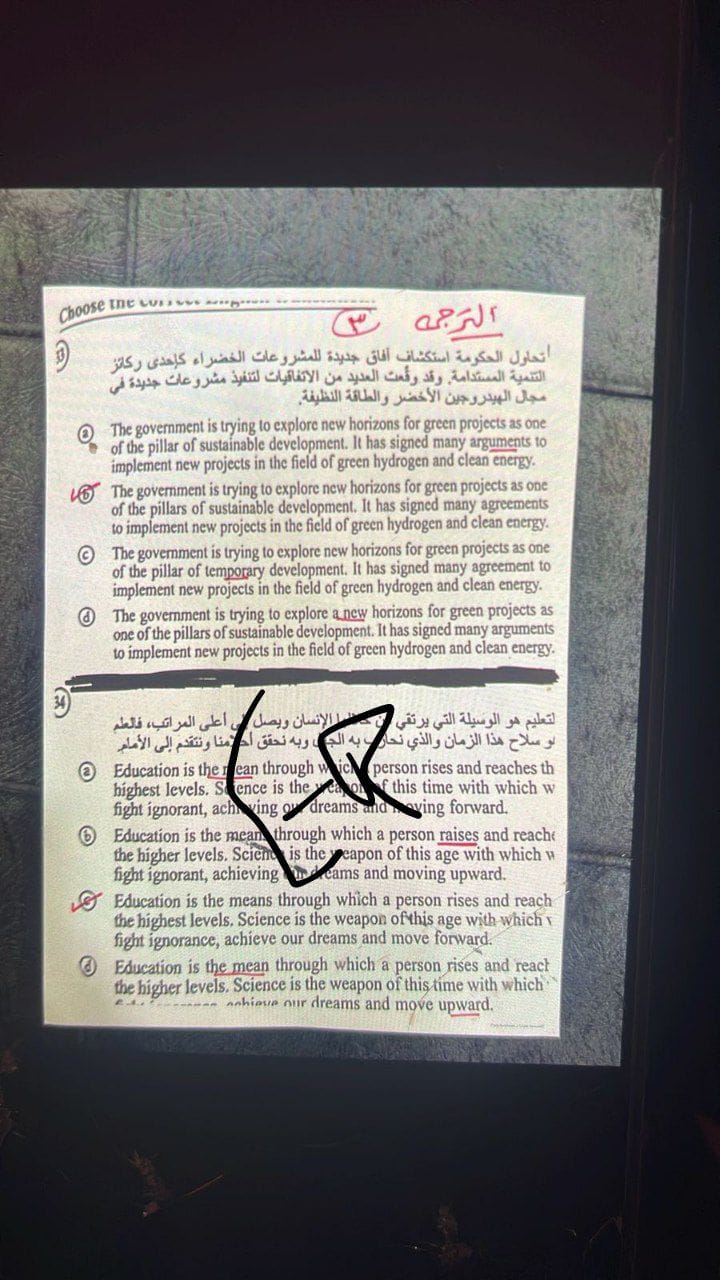 Choose the
الترجمة ٣
33
تحاول الحكومة استكشاف آفاق جديدة للمشروعات الخضراء كإحدى ركائز
التنمية المستدامة. وقد وقّعت العديد من الاتفاقيات لتنفيذ مشروعات جديدة في
مجال الهيدروجين الأخضر والطاقة النظيفة.
a The government is trying to explore new horizons for green projects as one
of the pillar of sustainable development. It has signed many arguments to
implement new projects in the field of green hydrogen and clean energy.
b The government is trying to explore new horizons for green projects as one
of the pillars of sustainable development. It has signed many agreements
to implement new projects in the field of green hydrogen and clean energy.
c The government is trying to explore new horizons for green projects as one
of the pillar of temporary development. It has signed many agreement to
implement new projects in the field of green hydrogen and clean energy.
d The government is trying to explore a new horizons for green projects as
one of the pillars of sustainable development. It has signed many arguments
to implement new projects in the field of green hydrogen and clean energy.
34
لتعليم هو الوسيلة التي يرتقي الإنسان ويصل أعلى المراتب، فالعلم
و سلاح هذا الزمان والذي به وبه نحقق ونتقدم إلى الأمام
a Education is the mean through which person rises and reaches th
highest levels. Science is the weapon of this time with which w
fight ignorant, achieving our dreams and moving forward.
b Education is the means through which a person raises and reache
the higher levels. Science is the weapon of this age with which w
fight ignorant, achieving our dreams and moving upward.
c Education is the means through which a person rises and reach
the highest levels. Science is the weapon of this age with which
fight ignorance, achieve our dreams and move forward.
d Education is the mean through which a person rises and reach
the higher levels. Science is the weapon of this time with which
achieve our dreams and move upward.